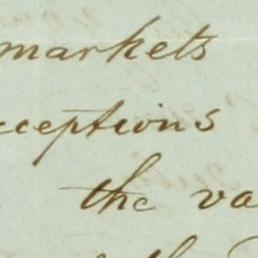 markets
cceptions
the va